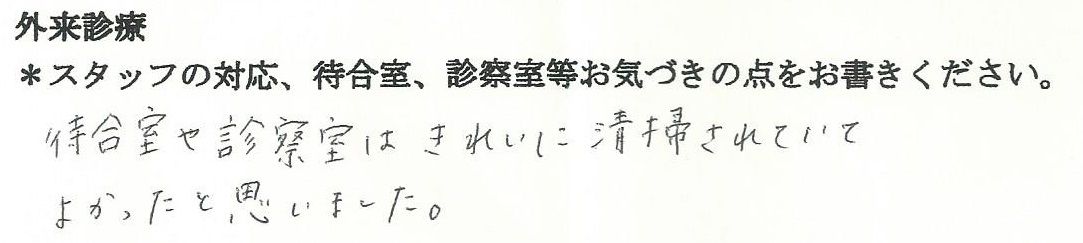 外来診療
＊スタッフの対応、待合室、診察室等お気づきの点をお書きください。
待合室や診察室はきれいに清掃されていて
よかったと思いました。